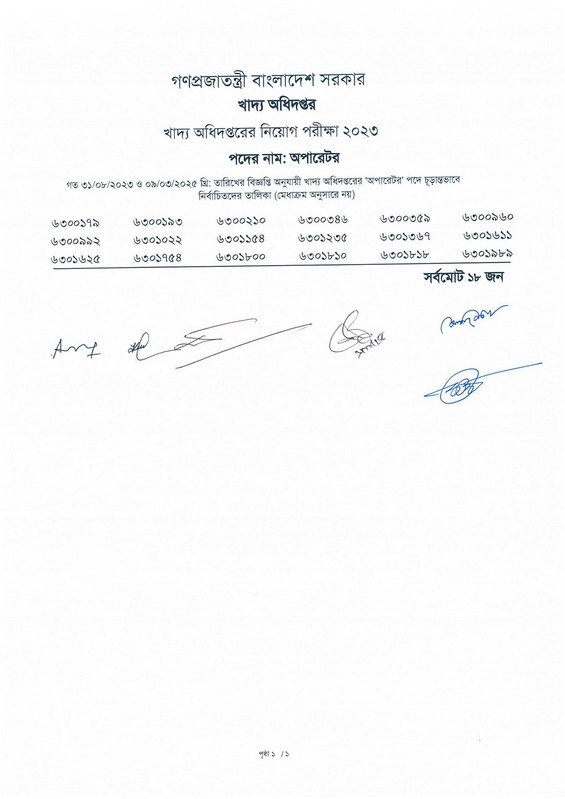 গণপ্রজাতন্ত্রী বাংলাদেশ সরকার
খাদ্য অধিদপ্তর
খাদ্য অধিদপ্তরের নিয়োগ পরীক্ষা ২০২৩
পদের নাম: অপারেটর
গত ৩১/০৮/২০২৩ ও ০৯/০৩/২০২৫ খ্রি: তারিখের বিজ্ঞপ্তি অনুযায়ী খাদ্য অধিদপ্তরের 'অপারেটর' পদে চূড়ান্তভাবে
নির্বাচিতদের তালিকা (মেধাক্রম অনুসারে নয়)
৬৩০০১৭৯ ৬৩০০১৯৩ ৬৩০০২১০ ৬৩০০৩৪৬ ৬৩০০৩৫৯ ৬৩০০৯৬০
৬৩০০৯৯২ ৬৩০১০২২ ৬৩০১১৫৪ ৬৩০১২৩৫ ৬৩০১৩৬৭ ৬৩০১৬১১
৬৩০১৬২৫ ৬৩০১৭৫৪ ৬৩০১৮০০ ৬৩০১৮১০ ৬৩০১৮১৮ ৬৩০১৯৮৯
সর্বমোট ১৮ জন
পৃষ্ঠা ১ /১